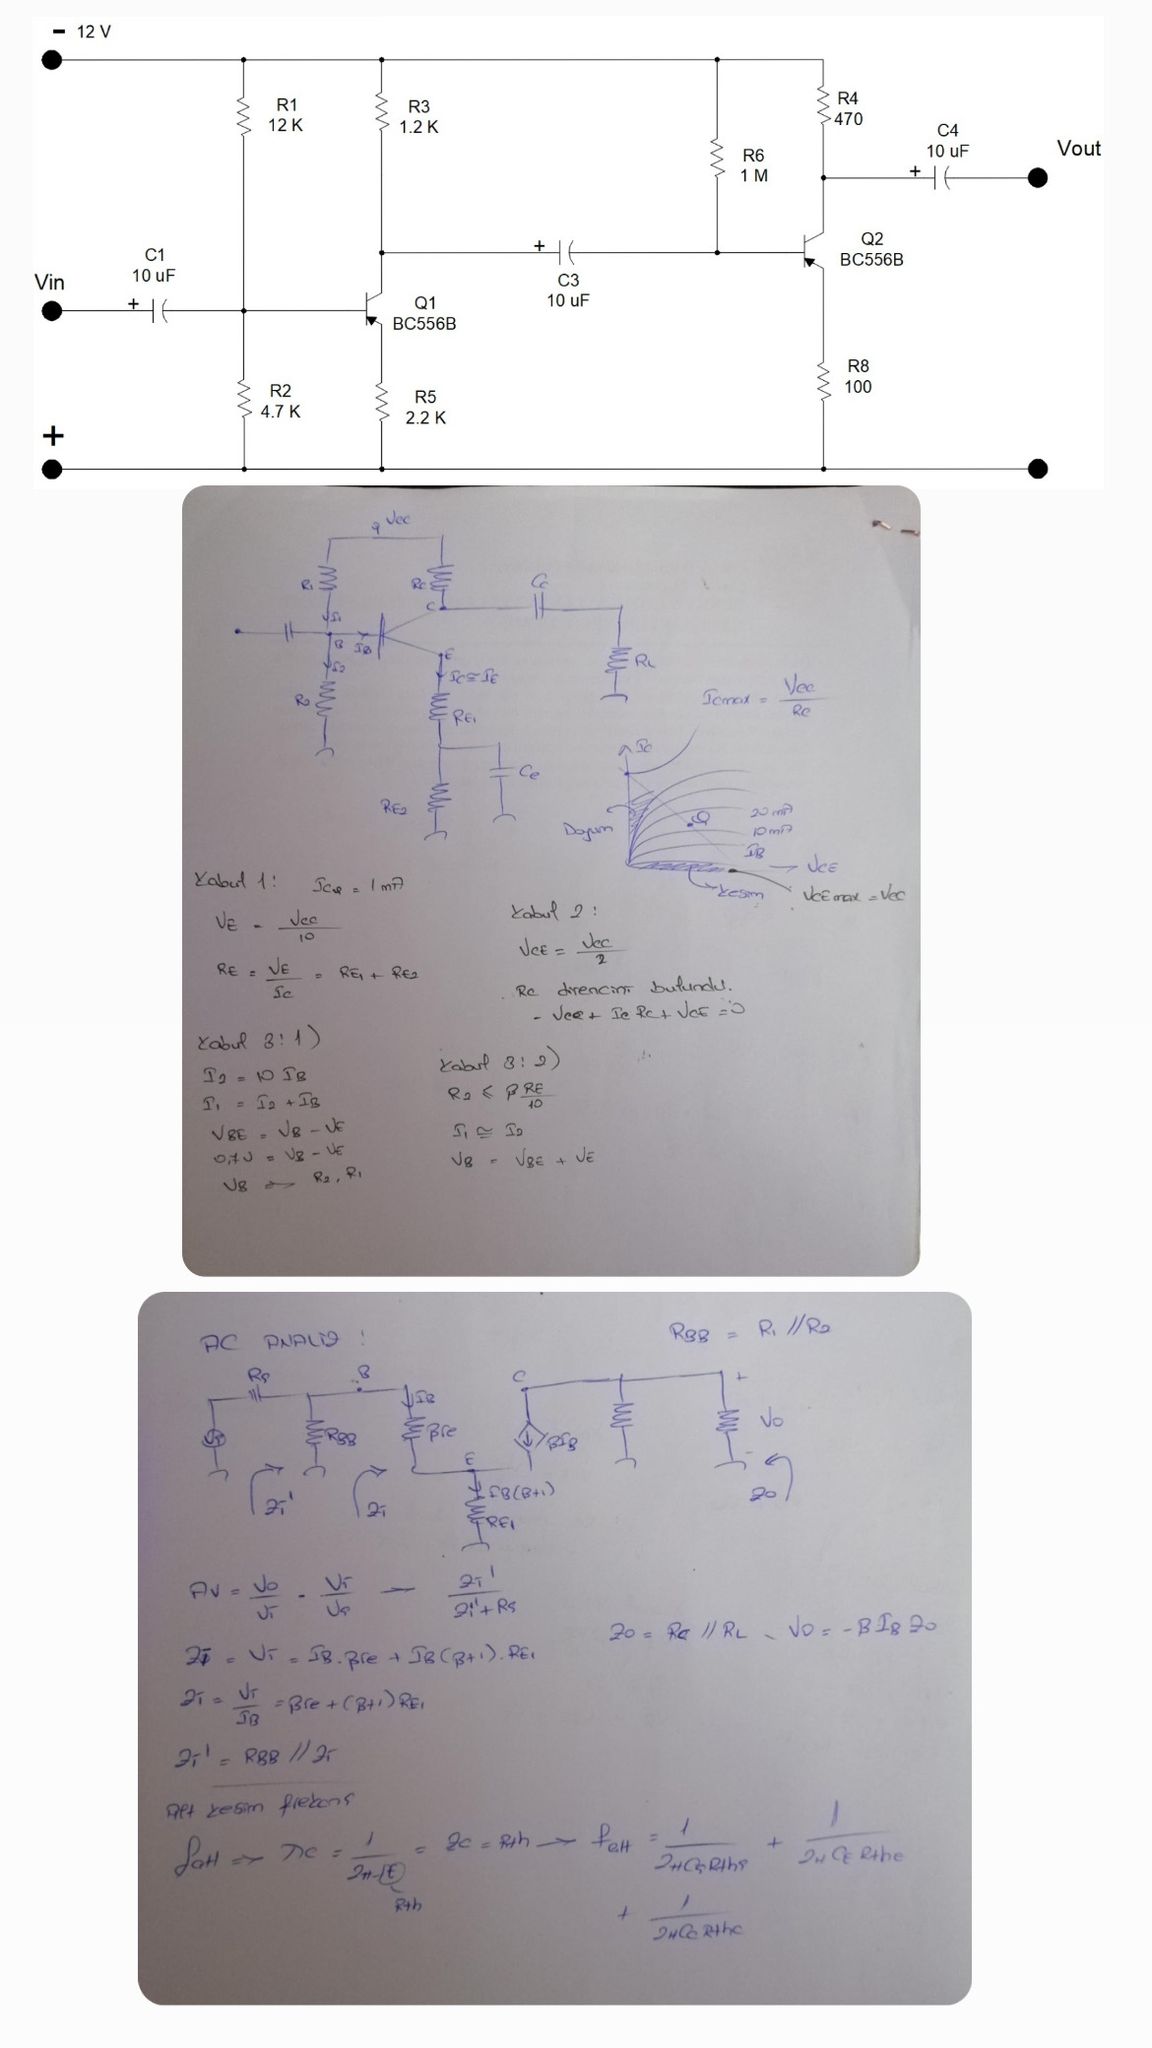 - 12 V
R1
12 K
R3
1.2 K
R4
470
C4
10 uF
Vout
R6
1 M
C1
10 uF
Vin
+
+
+
C3
10 uF
Q2
BC556B
Q1
BC556B
R2
4.7 K
R5
2.2 K
R8
100
+
+
Vcc
R1
Rc
C
Cc
I1
B
IB
I2
E
Ic≅IE
RL
RE1
Ce
RE2
Icmax = Vcc / Rc
Ic
Q
20 mA
10 mA
IB
Doyum
VCE
Kesim
VCEmax = Vcc
Kabul 1: IcQ = 1 mA
VE = Vcc / 10
RE = VE / Ic = RE1 + RE2
Kabul 2:
VCE = Vcc / 2
Rc direncini bulundu.
- Vcc + Ic Rc + VCE = 0
Kabul 3: 1)
I2 = 10 IB
I1 = I2 + IB
VBE = VB - VE
0,7V = VB - VE
VB → R2, R1
Kabul 3: 2)
R2 ≤ β RE / 10
I1 ≅ I2
VB = VBE + VE
AC ANALİZ :
RBB = R1 // R2
B
IB
RBB
βre
C
βIB
E
IB(β+1)
RE1
+
Vo
-
Zo
Zi'
Zi
Av = Vo / Vi · Vi / Vs → Zi' / Zi' + Rs
Zo = Rc // RL → Vo = -β IB Zo
Zi = Vi = IB.βre + IB(β+1).RE1
Zi = Vi / IB = βre + (β+1) RE1
Zi' = RBB // Zi
Alt kesim frekans
= Zc = Rth →
Rth